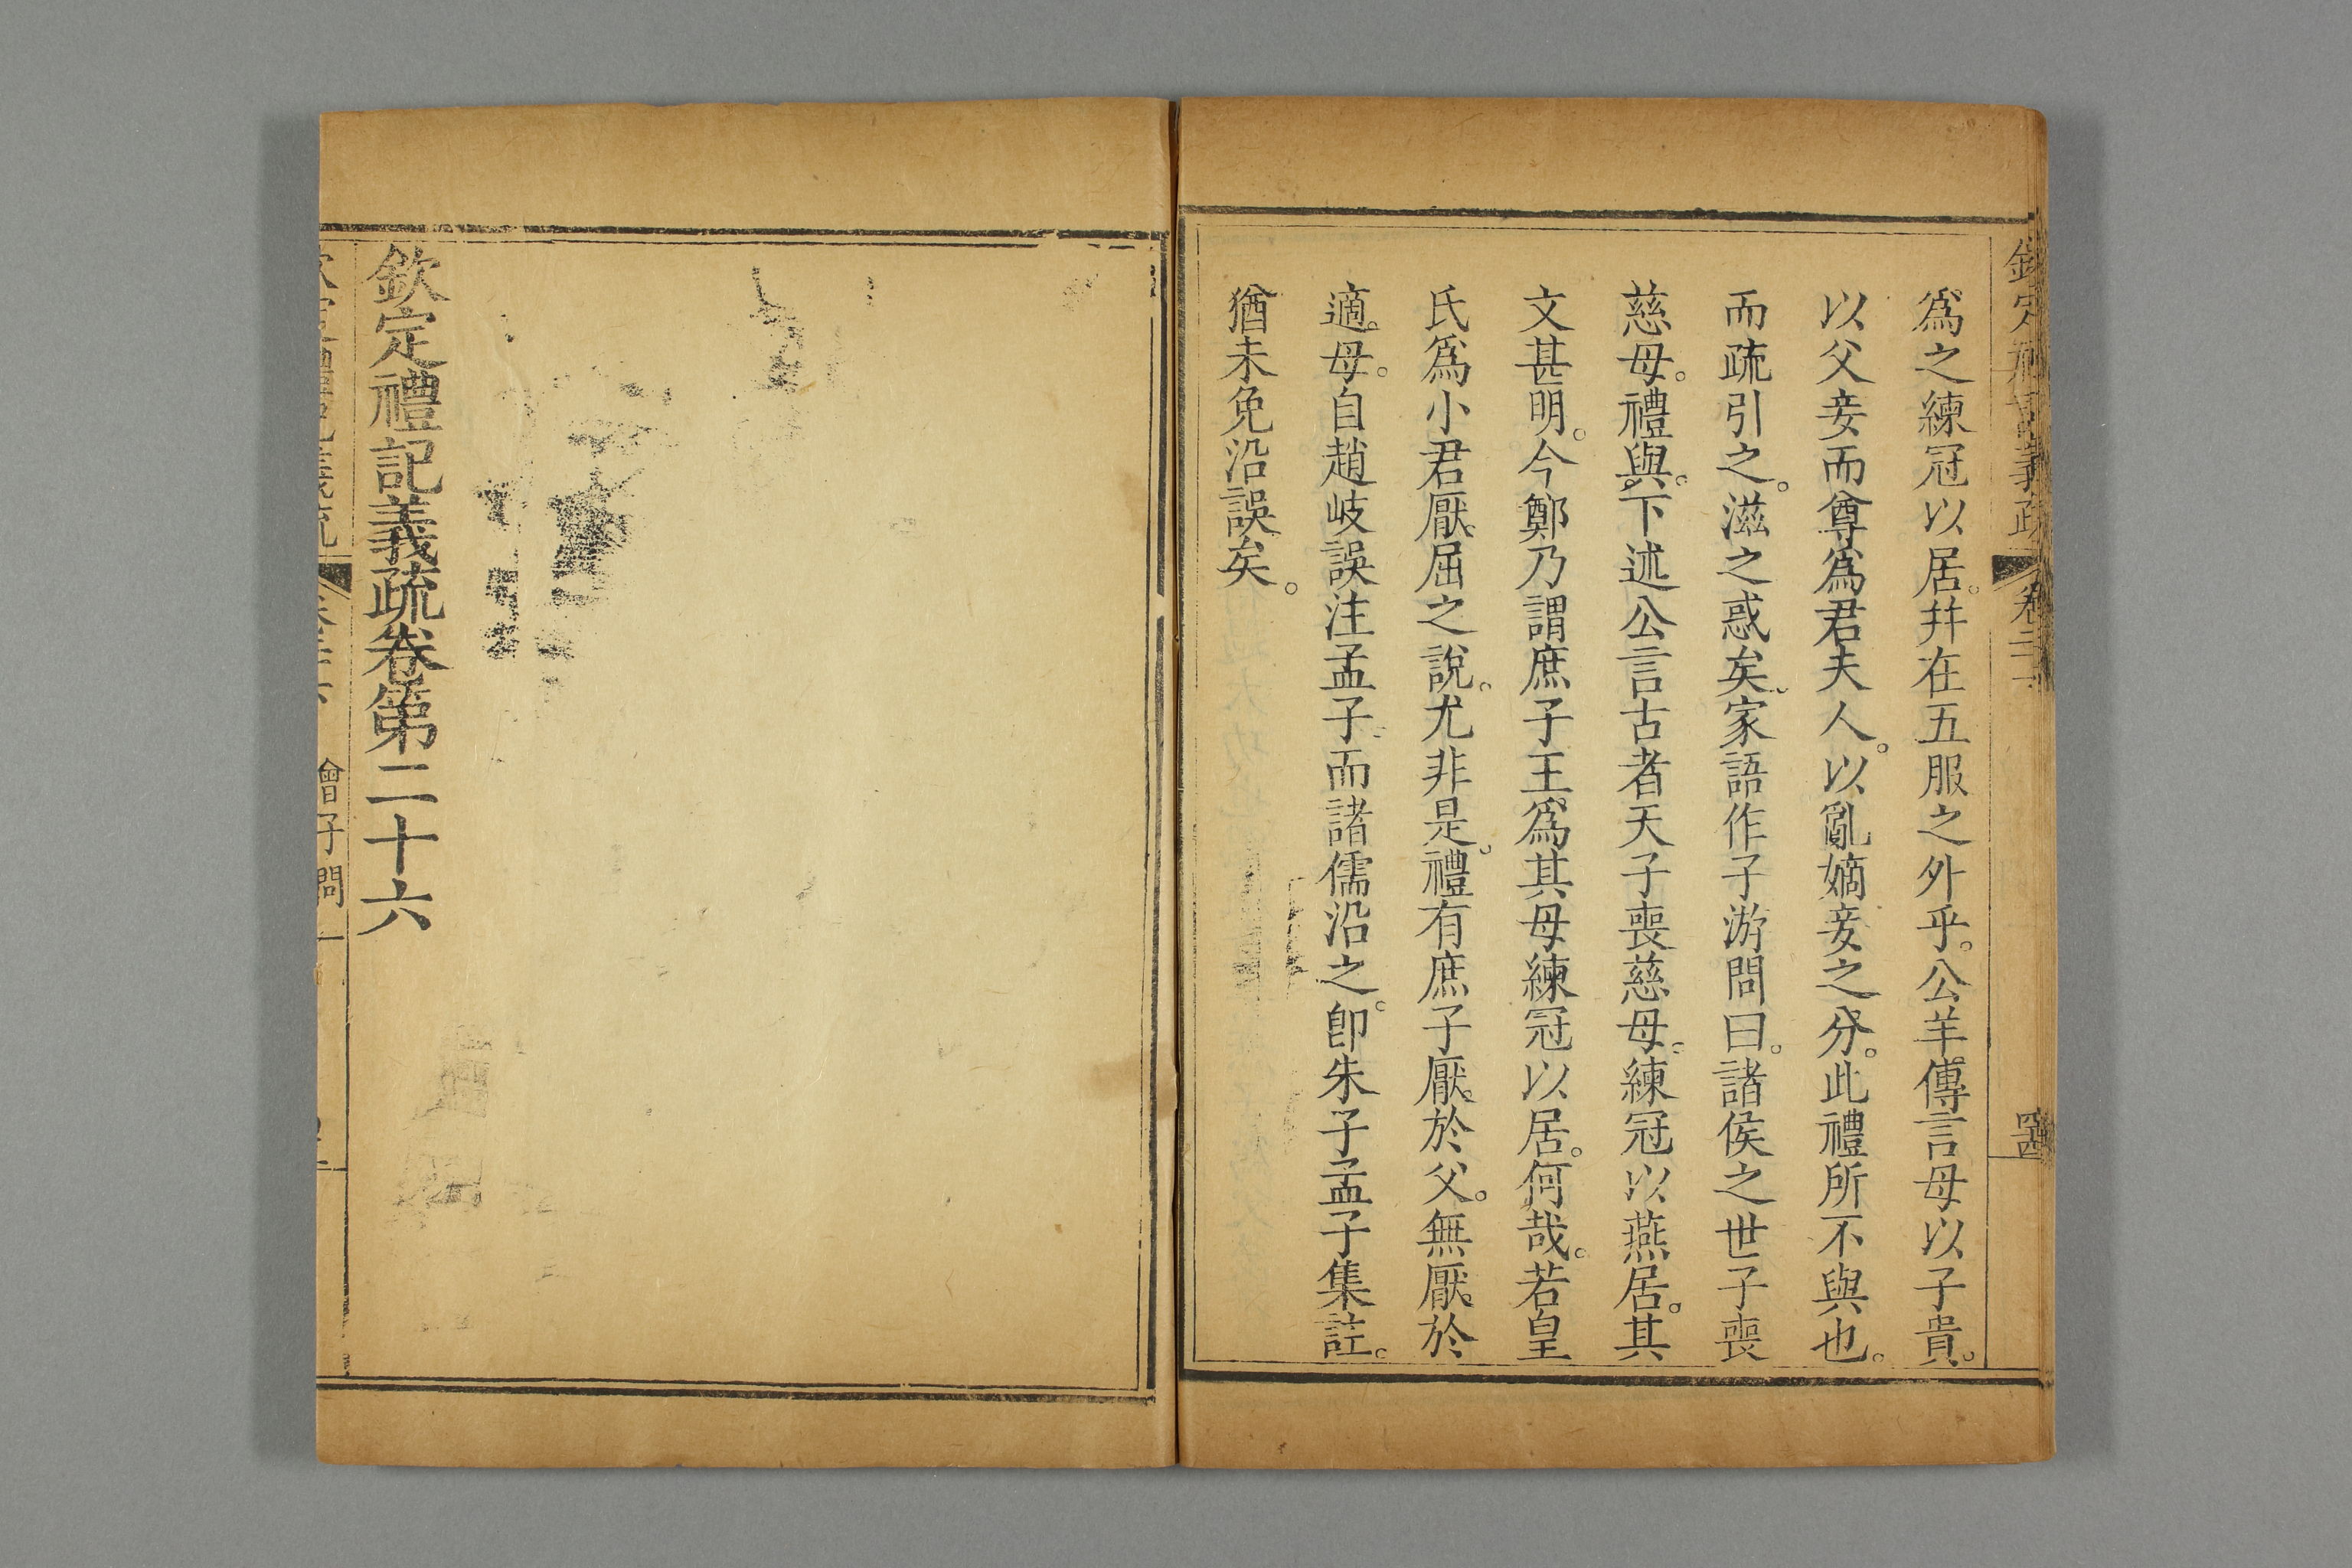 爲之練冠以居。幷在五服之外乎。公羊傳言母以子貴。
以父妾而尊爲君夫人。以亂嫡妾之分。此禮所不與也。
而疏引之。滋之惑矣。家語作子游問曰。諸侯之世子喪
慈母。禮與。下述公言古者天子喪慈母。練冠以燕居。其
文甚明。今鄭乃謂庶子王爲其母練冠以居。何哉。若皇
氏爲小君厭屈之說。尤非是。禮有庶子厭於父。無厭於
適母。自趙岐誤注孟子。而諸儒沿之。卽朱子孟子集註。
猶未免沿誤矣。
欽定禮記義疏卷第二十六
曾子問